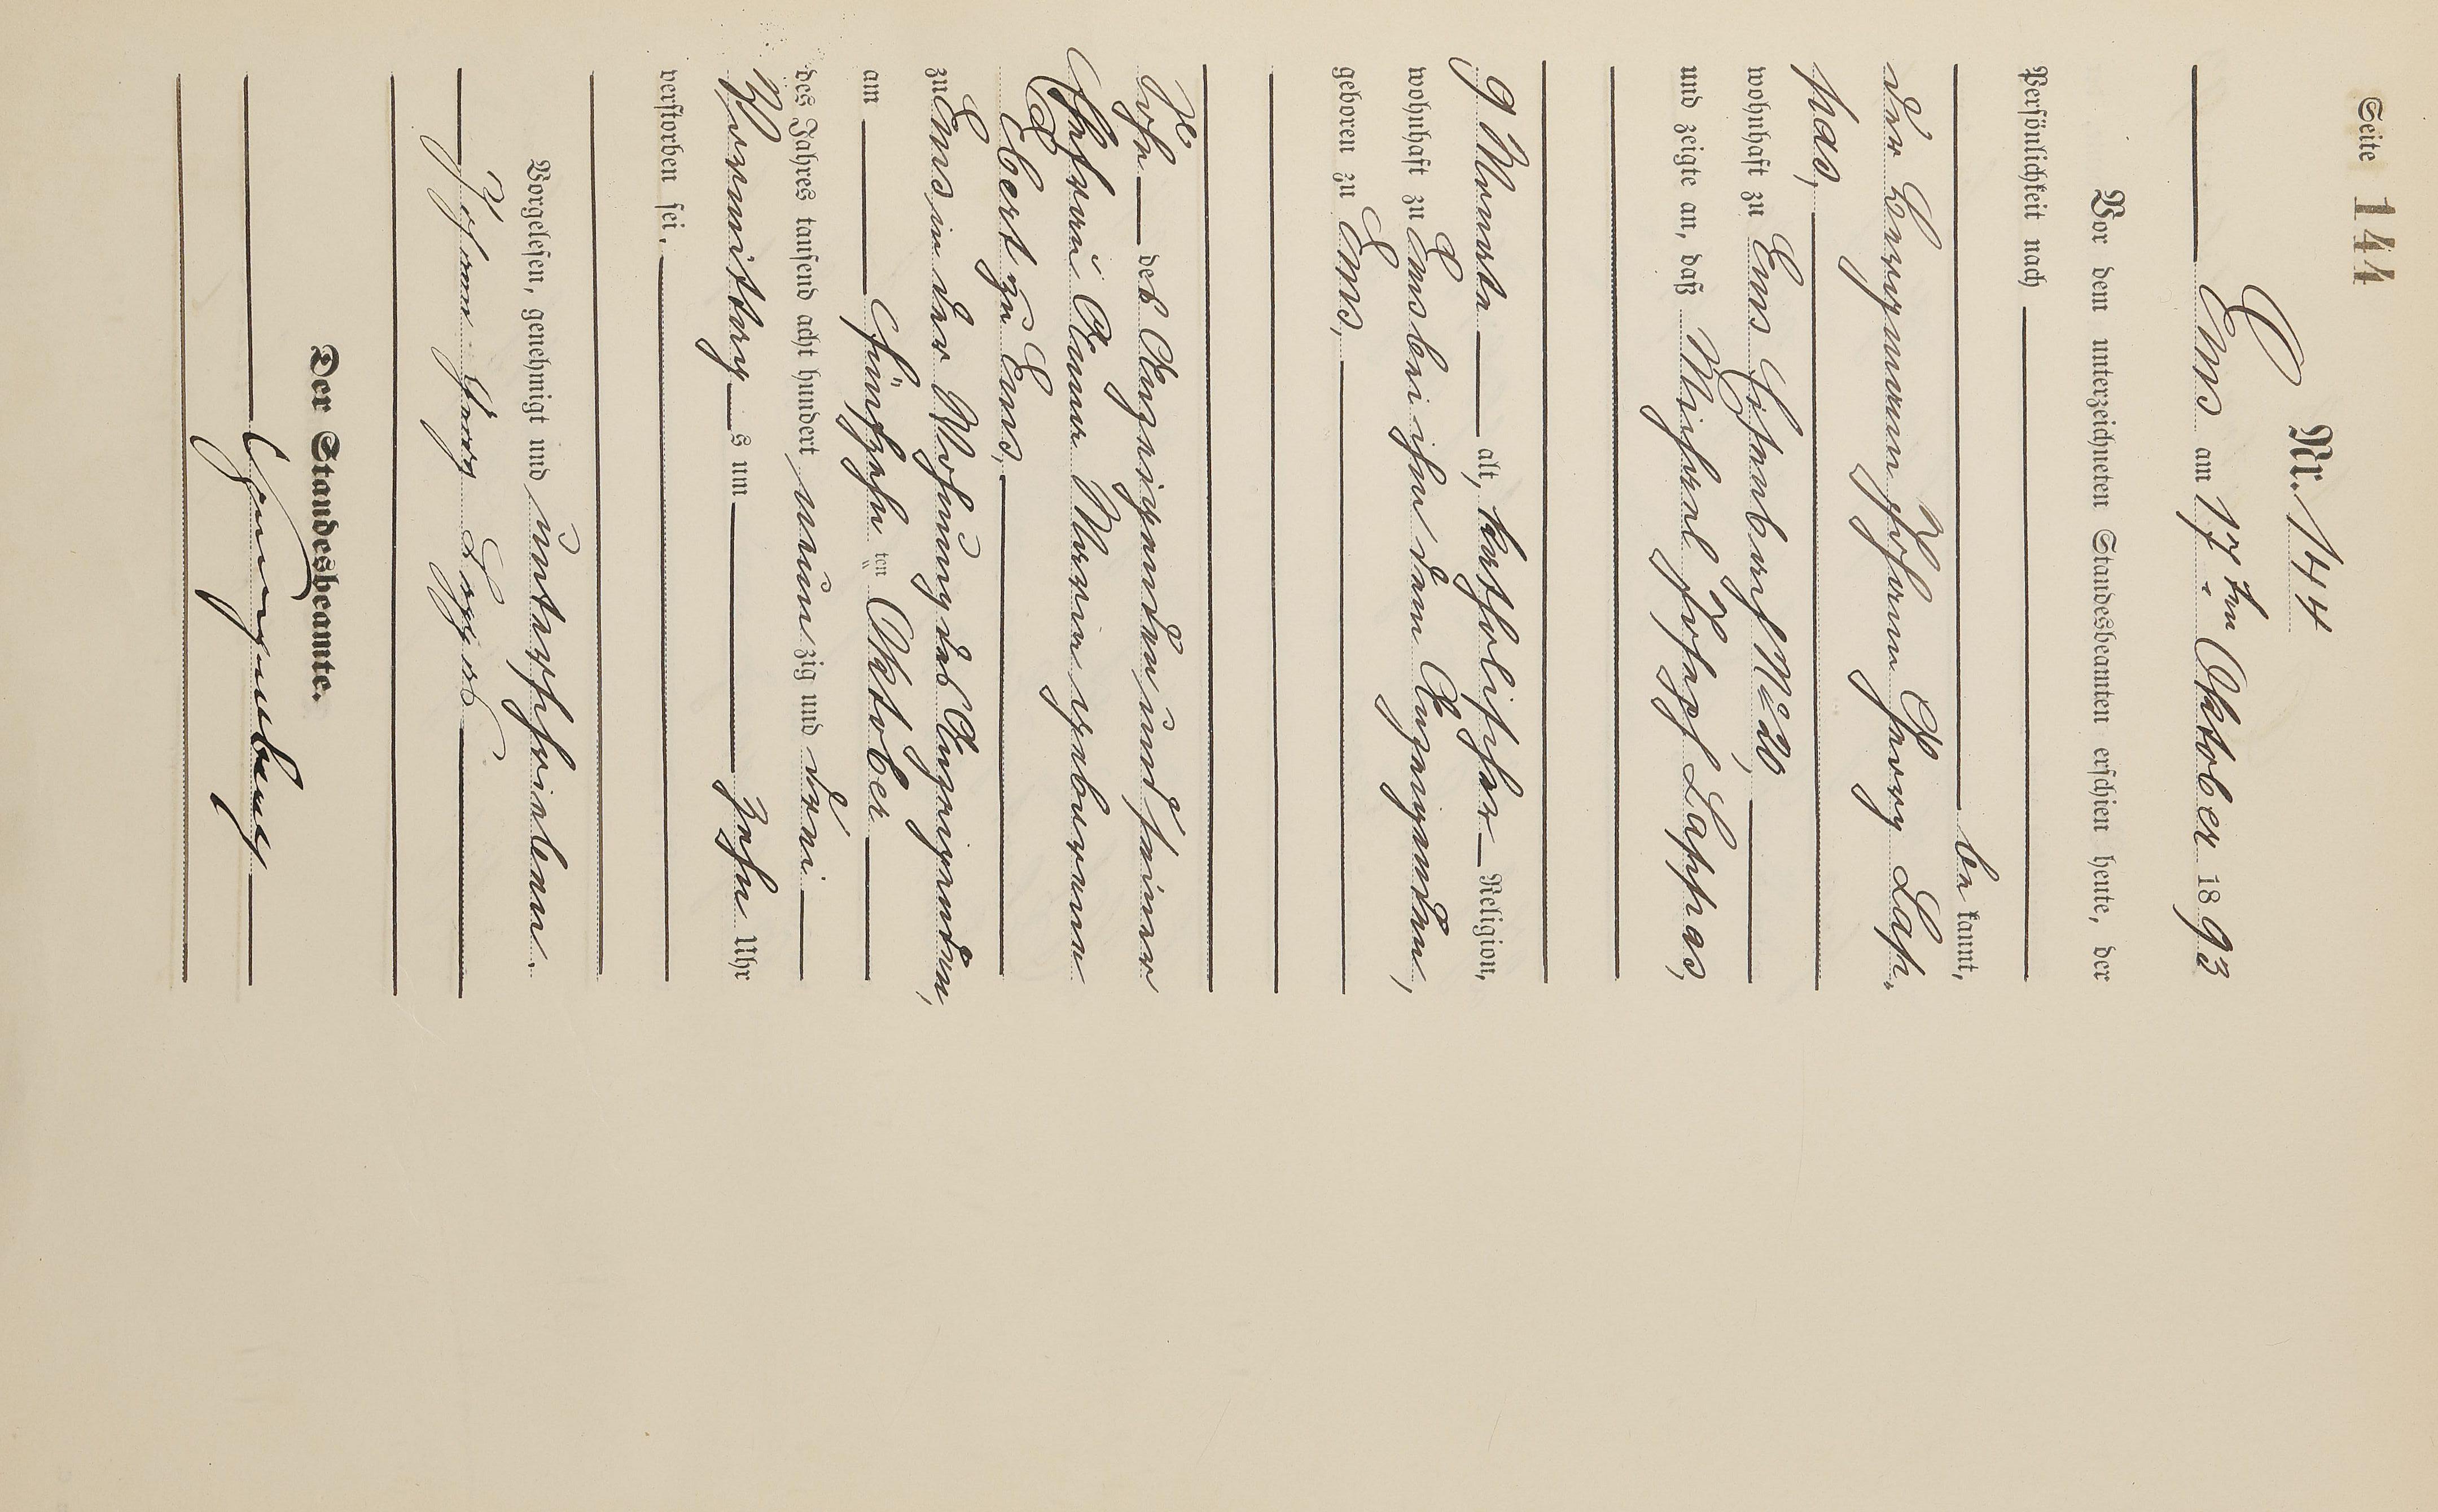 Seite 144
Nr. 144
Ems am 17ten Oktober 1893
Vor dem unterzeichneten Standesbeamten erschien heute, der
Persönlichkeit nach
bekannt,
der Bergmann Johann Georg Lap-
pas,
wohnhaft zu Ems Eisenbach No 20,
und zeigte an, daß Michael Joseph Lappas,
9 Monate alt, katholischer Religion,
wohnhaft zu Ems bei ihm dem Anzeigenden,
geboren zu Ems,
Sohn des Anzeigenden und seiner
Ehefrau Anna Maria geborenen
Ebert zu Ems,
zu Ems in der Wohnung des Anzeigenden,
am fünfzehnten Oktober
des Jahres tausend acht hundert neunzig und drei
Vormittags um zehn Uhr
verstorben sei.
Vorgelesen, genehmigt und unterschrieben.
Johann Georg Lappas
Der Standesbeamte.